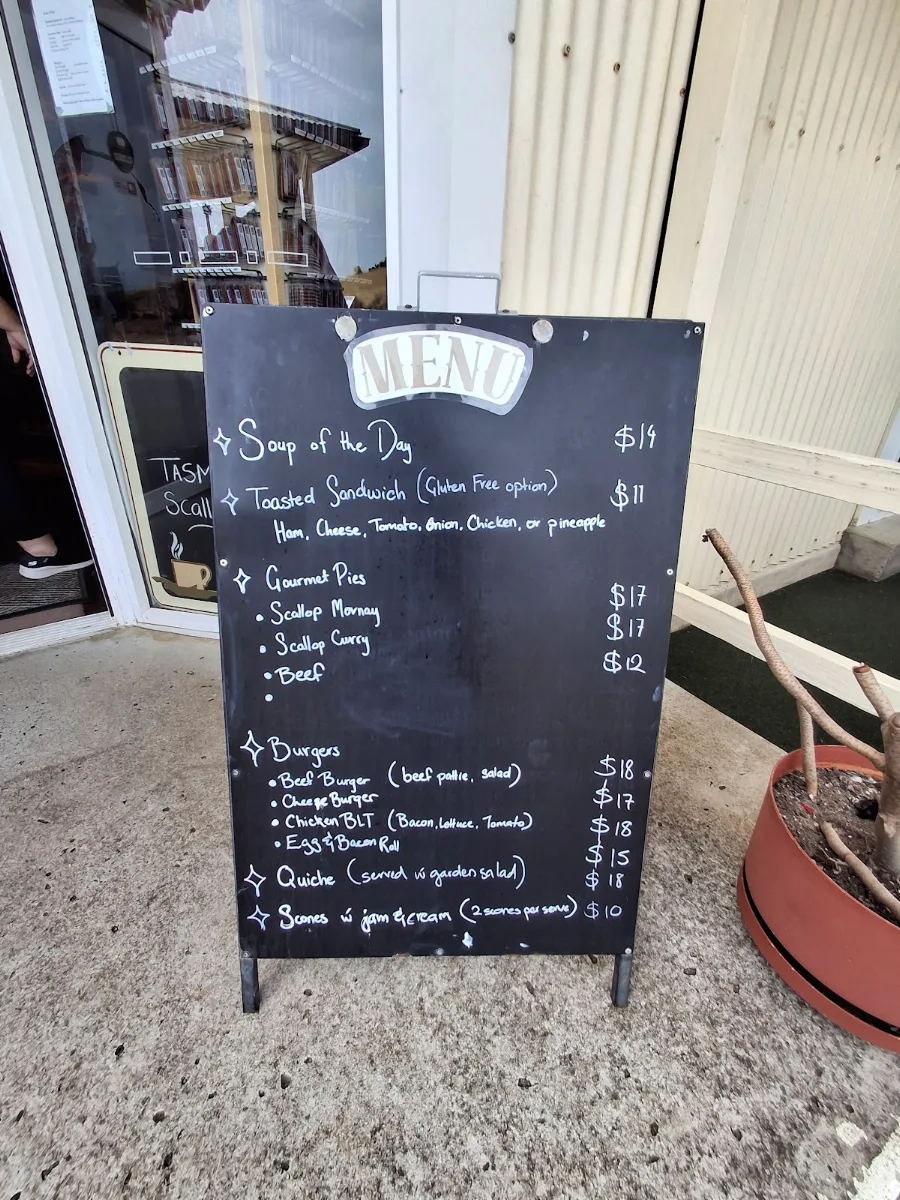 MENU
Soup of the Day $14
Toasted Sandwich (Gluten Free option) $11
Ham, Cheese, Tomato, Onion, Chicken, or pineapple
Gourmet Pies
• Scallop Mornay $17
• Scallop Curry $17
• Beef $12
•
Burgers
• Beef Burger (beef pattie, salad) $18
• Cheese Burger $17
• Chicken BLT (Bacon, Lettuce, Tomato) $18
• Egg & Bacon Roll $15
Quiche (served w garden salad) $18
Scones w jam & cream (2 scones per serve) $10
TASM
Scall